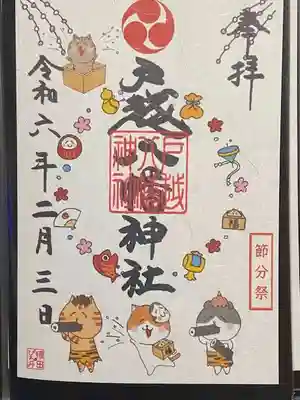 奉拝
戸越八幡神社
戸越
八幡
神社
令和六年二月三日
節分祭
福